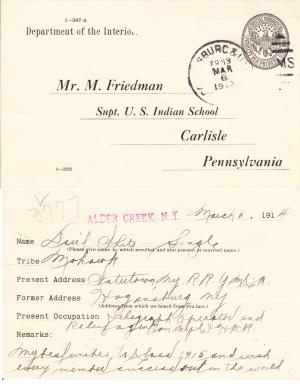 1-567 a
Department of the Interior.
MAR
6
Mr. M. Friedman
Supt. U. S. Indian School
Carlisle
Pennsylvania
ALDER CREEK, N.Y. March 6, 1914
Name David White Single
(Please give name by which enrolled and also present or married name.)
Tribe Mohawk
Present Address Watertown N.Y. R.R. Y.M.C.A.
Former Address Hogansburg N.Y.
(Address from which we heard from you last.)
Present Occupation Telegraph Operator and
Relief agent on N.Y.C. & H.R.R.R.
Remarks:
My best wishes to Class 1915 and wish
every member success out in the world